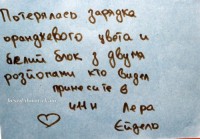 Потерялась зарядка
оранжевого цвета и
белий блок з двумя
розйомами кто видел
принесите в
или Лера
Ейдель